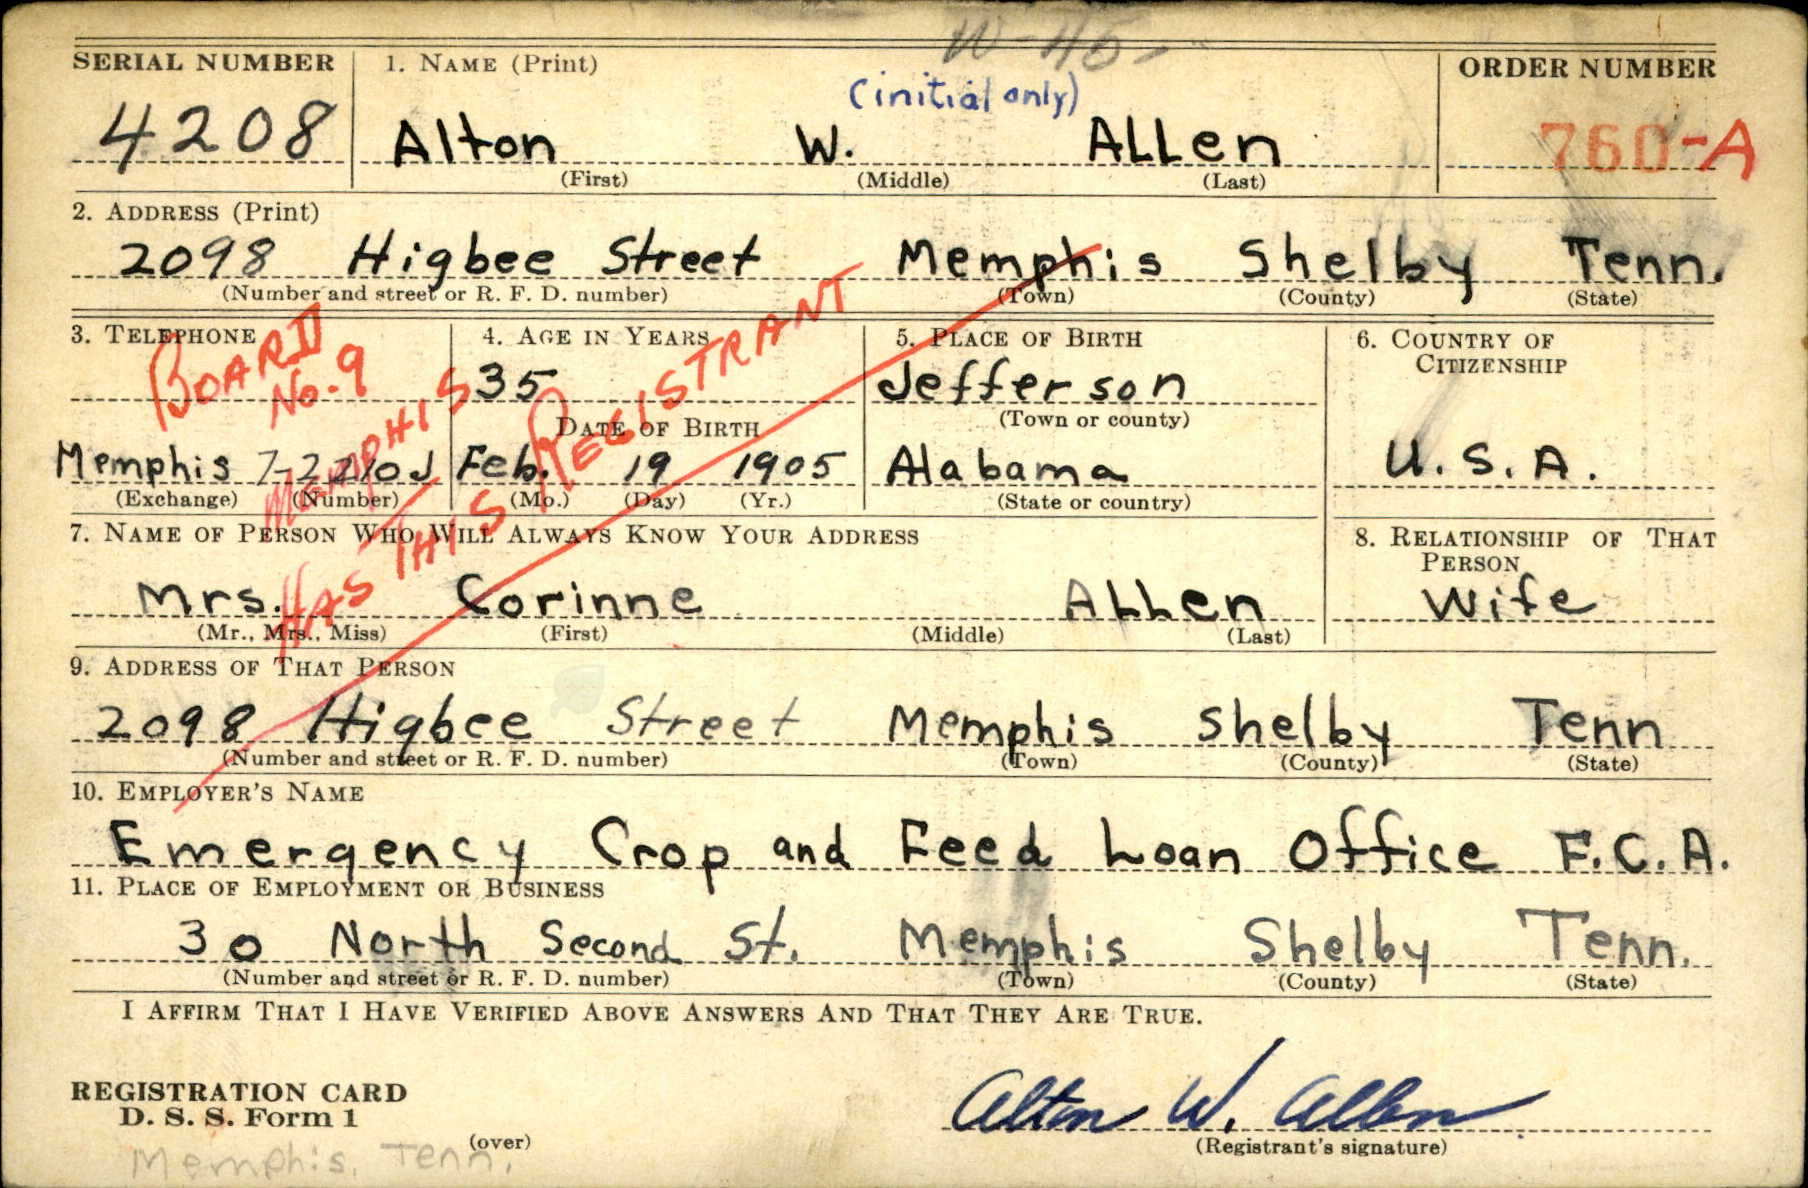 W-46-
SERIAL NUMBER 1. NAME (Print) ORDER NUMBER
(initial only)
4208 Alton W. ALLen 760-A
(First) (Middle) (Last)
2. ADDRESS (Print)
2098 Higbee Street Memphis Shelby Tenn.
(Number and street or R. F. D. number) (Town) (County) (State)
3. TELEPHONE 4. AGE IN YEARS 5. PLACE OF BIRTH 6. COUNTRY OF
CITIZENSHIP
35 Jefferson
DATE OF BIRTH (Town or county)
Memphis Feb. 19 1905 Alabama U.S.A.
(Exchange) (Number) (Mo.) (Day) (Yr.) (State or country)
BOARD
No. 9
MEMPHIS
HAS THIS REGISTRANT
7. NAME OF PERSON WHO WILL ALWAYS KNOW YOUR ADDRESS 8. RELATIONSHIP OF THAT
PERSON
Mrs. Corinne ALLen Wife
(Mr., Mrs., Miss) (First) (Middle) (Last)
9. ADDRESS OF THAT PERSON
2098 Higbee Street Memphis Shelby Tenn
(Number and street or R. F. D. number) (Town) (County) (State)
10. EMPLOYER'S NAME
Emergency Crop and Feed Loan Office F.C.A.
11. PLACE OF EMPLOYMENT OR BUSINESS
30 North Second St. Memphis Shelby Tenn.
(Number and street or R. F. D. number) (Town) (County) (State)
I AFFIRM THAT I HAVE VERIFIED ABOVE ANSWERS AND THAT THEY ARE TRUE.
REGISTRATION CARD
D. S. S. Form 1 Alton W. Allen
(over) (Registrant's signature)
Memphis, Tenn.